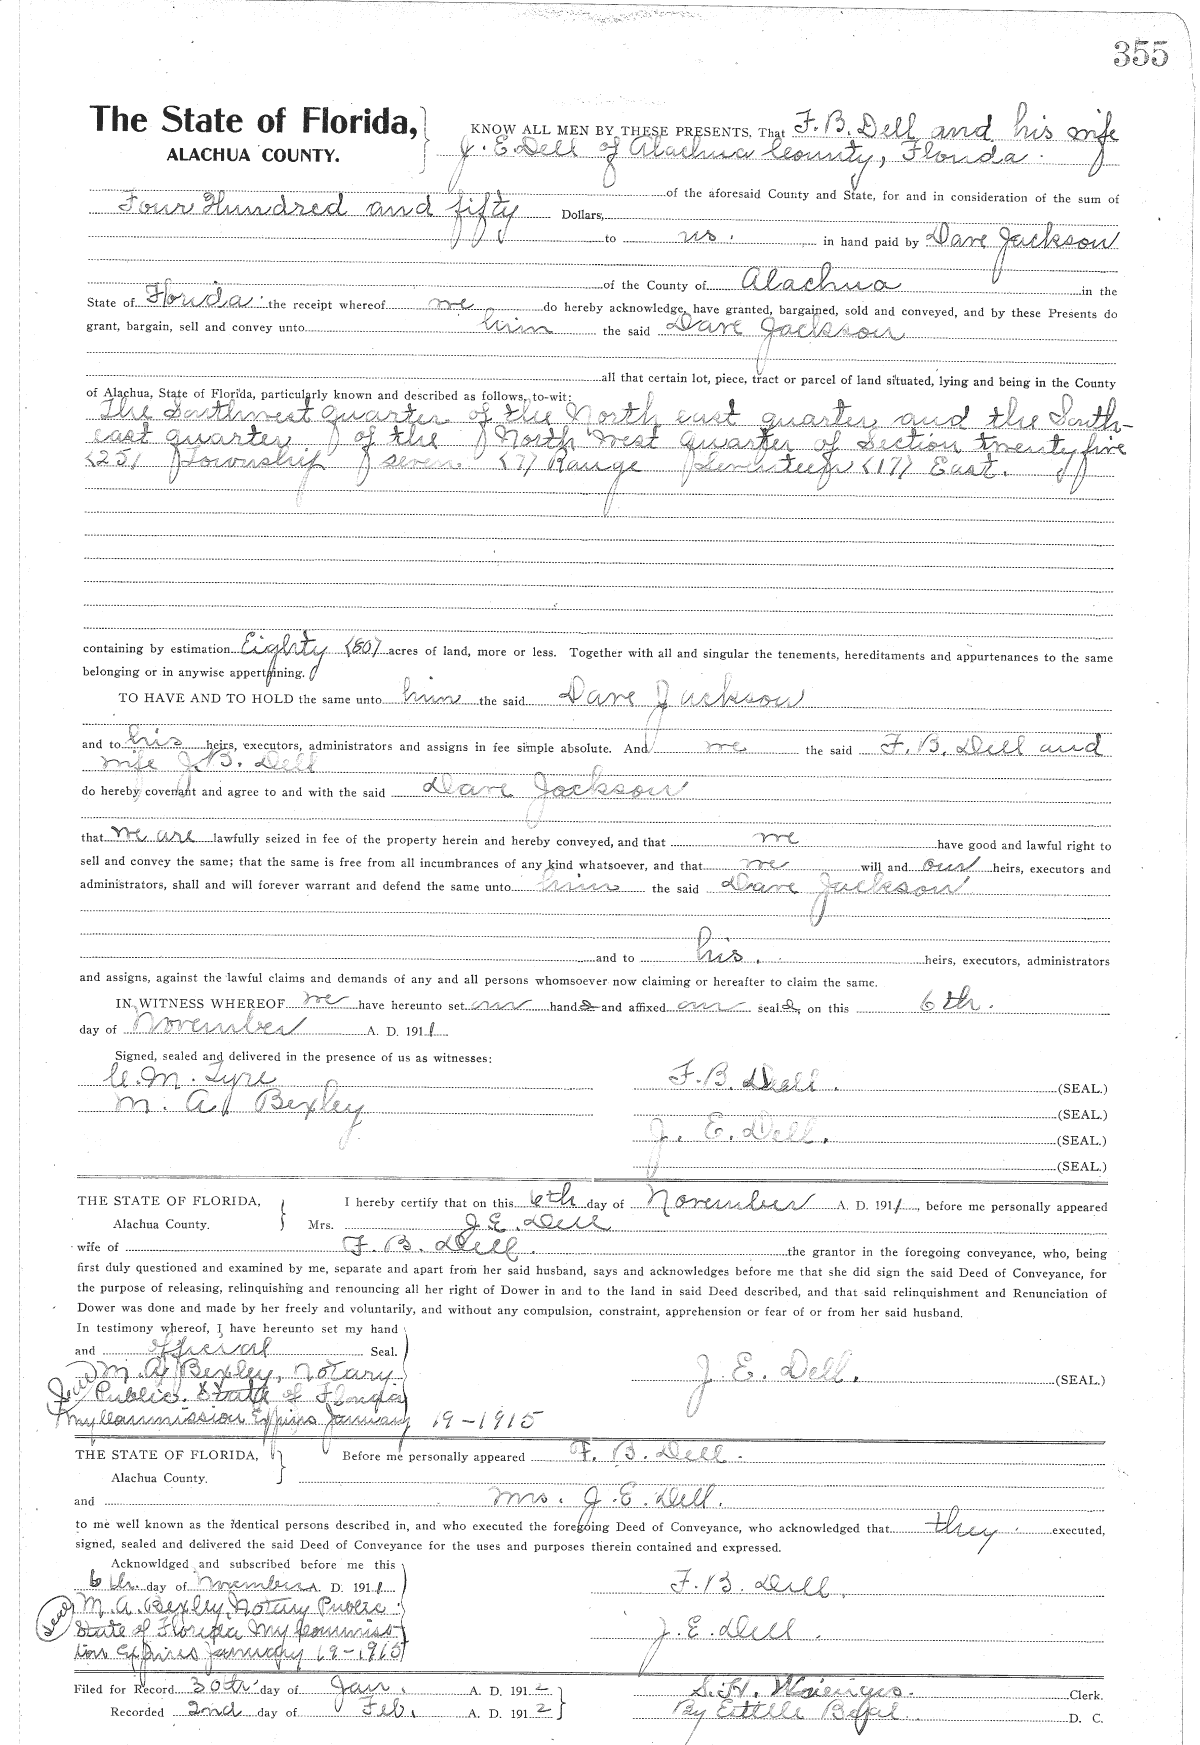 355
The State of Florida,
ALACHUA COUNTY.
KNOW ALL MEN BY THESE PRESENTS, That F. B. Dell and his wife
J. E. Dell of Alachua County, Florida.
of the aforesaid County and State, for and in consideration of the sum of
Four Hundred and fifty Dollars,
to us. in hand paid by Dave Jackson
of the County of Alachua in the
State of Florida the receipt whereof we do hereby acknowledge, have granted, bargained, sold and conveyed, and by these Presents do
grant, bargain, sell and convey unto him the said Dave Jackson
all that certain lot, piece, tract or parcel of land situated, lying and being in the County
of Alachua, State of Florida, particularly known and described as follows, to-wit:
The Southwest quarter of the North east quarter and the South-
east quarter of the North West quarter of Section twenty five
(25) Township seven (7) Range Seventeen (17) East.
containing by estimation Eighty (80) acres of land, more or less. Together with all and singular the tenements, hereditaments and appurtenances to the same
belonging or in anywise appertaining.
TO HAVE AND TO HOLD the same unto him the said Dave Jackson
and to his heirs, executors, administrators and assigns in fee simple absolute. And we the said F. B. Dell and
wife J. B. Dell
do hereby covenant and agree to and with the said Dave Jackson
that we are lawfully seized in fee of the property herein and hereby conveyed, and that we have good and lawful right to
sell and convey the same; that the same is free from all incumbrances of any kind whatsoever, and that we will and our heirs, executors and
administrators, shall and will forever warrant and defend the same unto him the said Dave Jackson
and to his. heirs, executors, administrators
and assigns, against the lawful claims and demands of any and all persons whomsoever now claiming or hereafter to claim the same.
IN WITNESS WHEREOF we have hereunto set our hands and affixed our seals, on this 6th.
day of November A. D. 1911.
Signed, sealed and delivered in the presence of us as witnesses:
U. M. Tyre F. B. Dell. (SEAL.)
M. A. Bexley (SEAL.)
J. E. Dell. (SEAL.)
(SEAL.)
THE STATE OF FLORIDA, I hereby certify that on this 6th day of November A. D. 1911, before me personally appeared
Alachua County. Mrs. J. E. Dell
wife of F. B. Dell. the grantor in the foregoing conveyance, who, being
first duly questioned and examined by me, separate and apart from her said husband, says and acknowledges before me that she did sign the said Deed of Conveyance, for
the purpose of releasing, relinquishing and renouncing all her right of Dower in and to the land in said Deed described, and that said relinquishment and Renunciation of
Dower was done and made by her freely and voluntarily, and without any compulsion, constraint, apprehension or fear of or from her said husband.
In testimony whereof, I have hereunto set my hand
and official Seal.
M. A. Bexley, Notary J. E. Dell. (SEAL.)
Public. State of Florida
My Commission Expires January 19-1915
THE STATE OF FLORIDA, Before me personally appeared F. B. Dell.
Alachua County.
and Mrs. J. E. Dell.
to me well known as the identical persons described in, and who executed the foregoing Deed of Conveyance, who acknowledged that they executed,
signed, sealed and delivered the said Deed of Conveyance for the uses and purposes therein contained and expressed.
Acknowldged and subscribed before me this
6th. day of November A. D. 1911. F. B. Dell.
Seal M. A. Bexley Notary Public
State of Florida My Commiss- J. E. Dell.
ion Expires January 19-1915
Filed for Record 30th day of Jan. A. D. 1912 S. H. Wienges. Clerk.
Recorded 2nd day of Feb. A. D. 1912 By D. C.